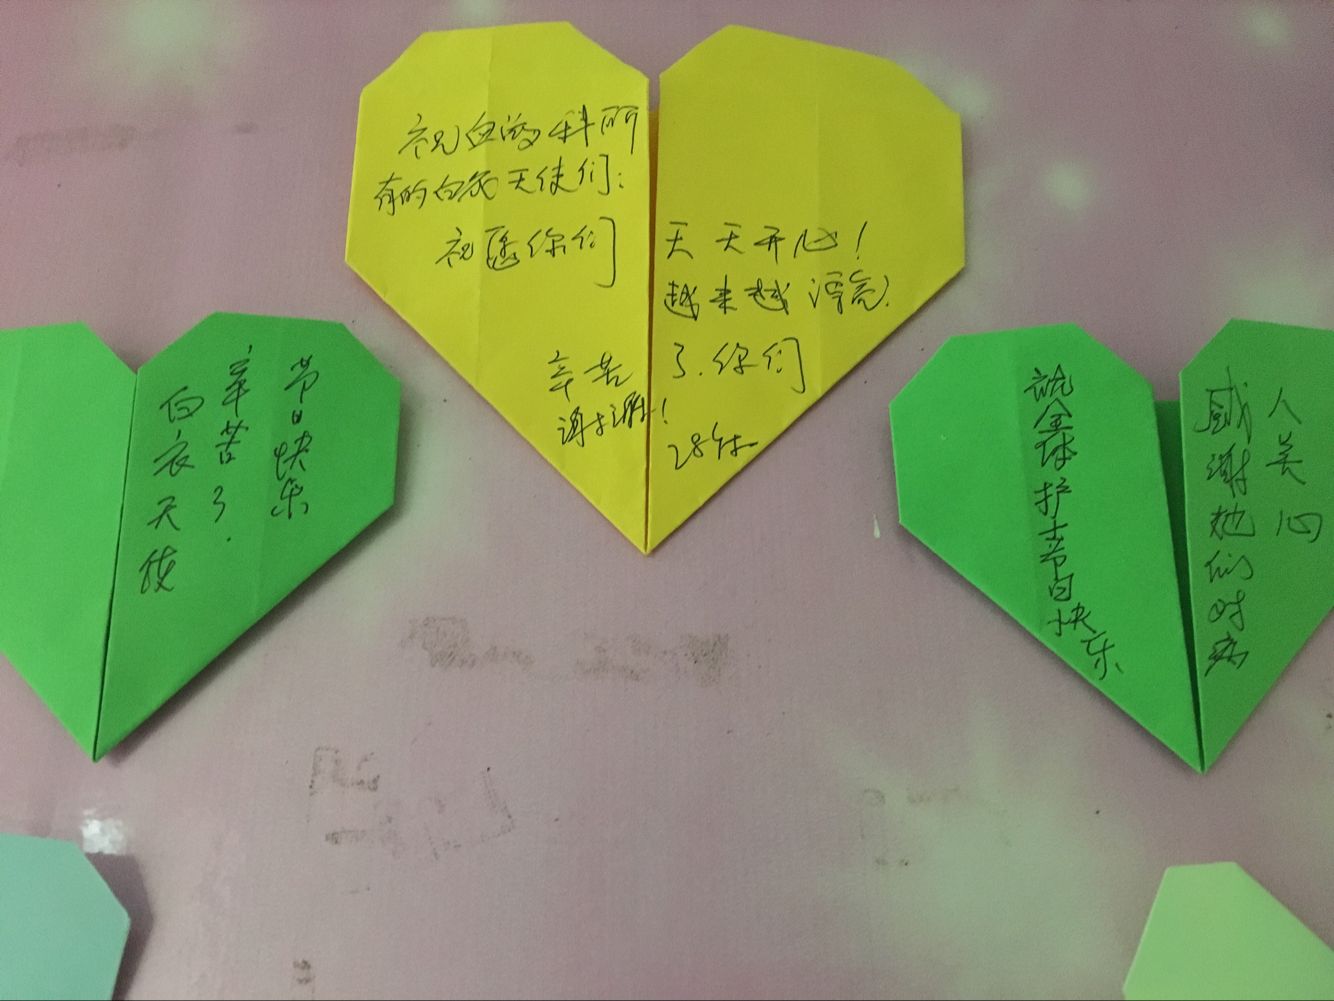 节日快乐
辛苦了.
白衣天使
祝血液科所
有的白衣天使们:
祝愿你们
天天开心!
越来越漂亮.
辛苦了.你们
谢谢!
28床
祝全体护士节日快乐
人美心
感谢她们对病